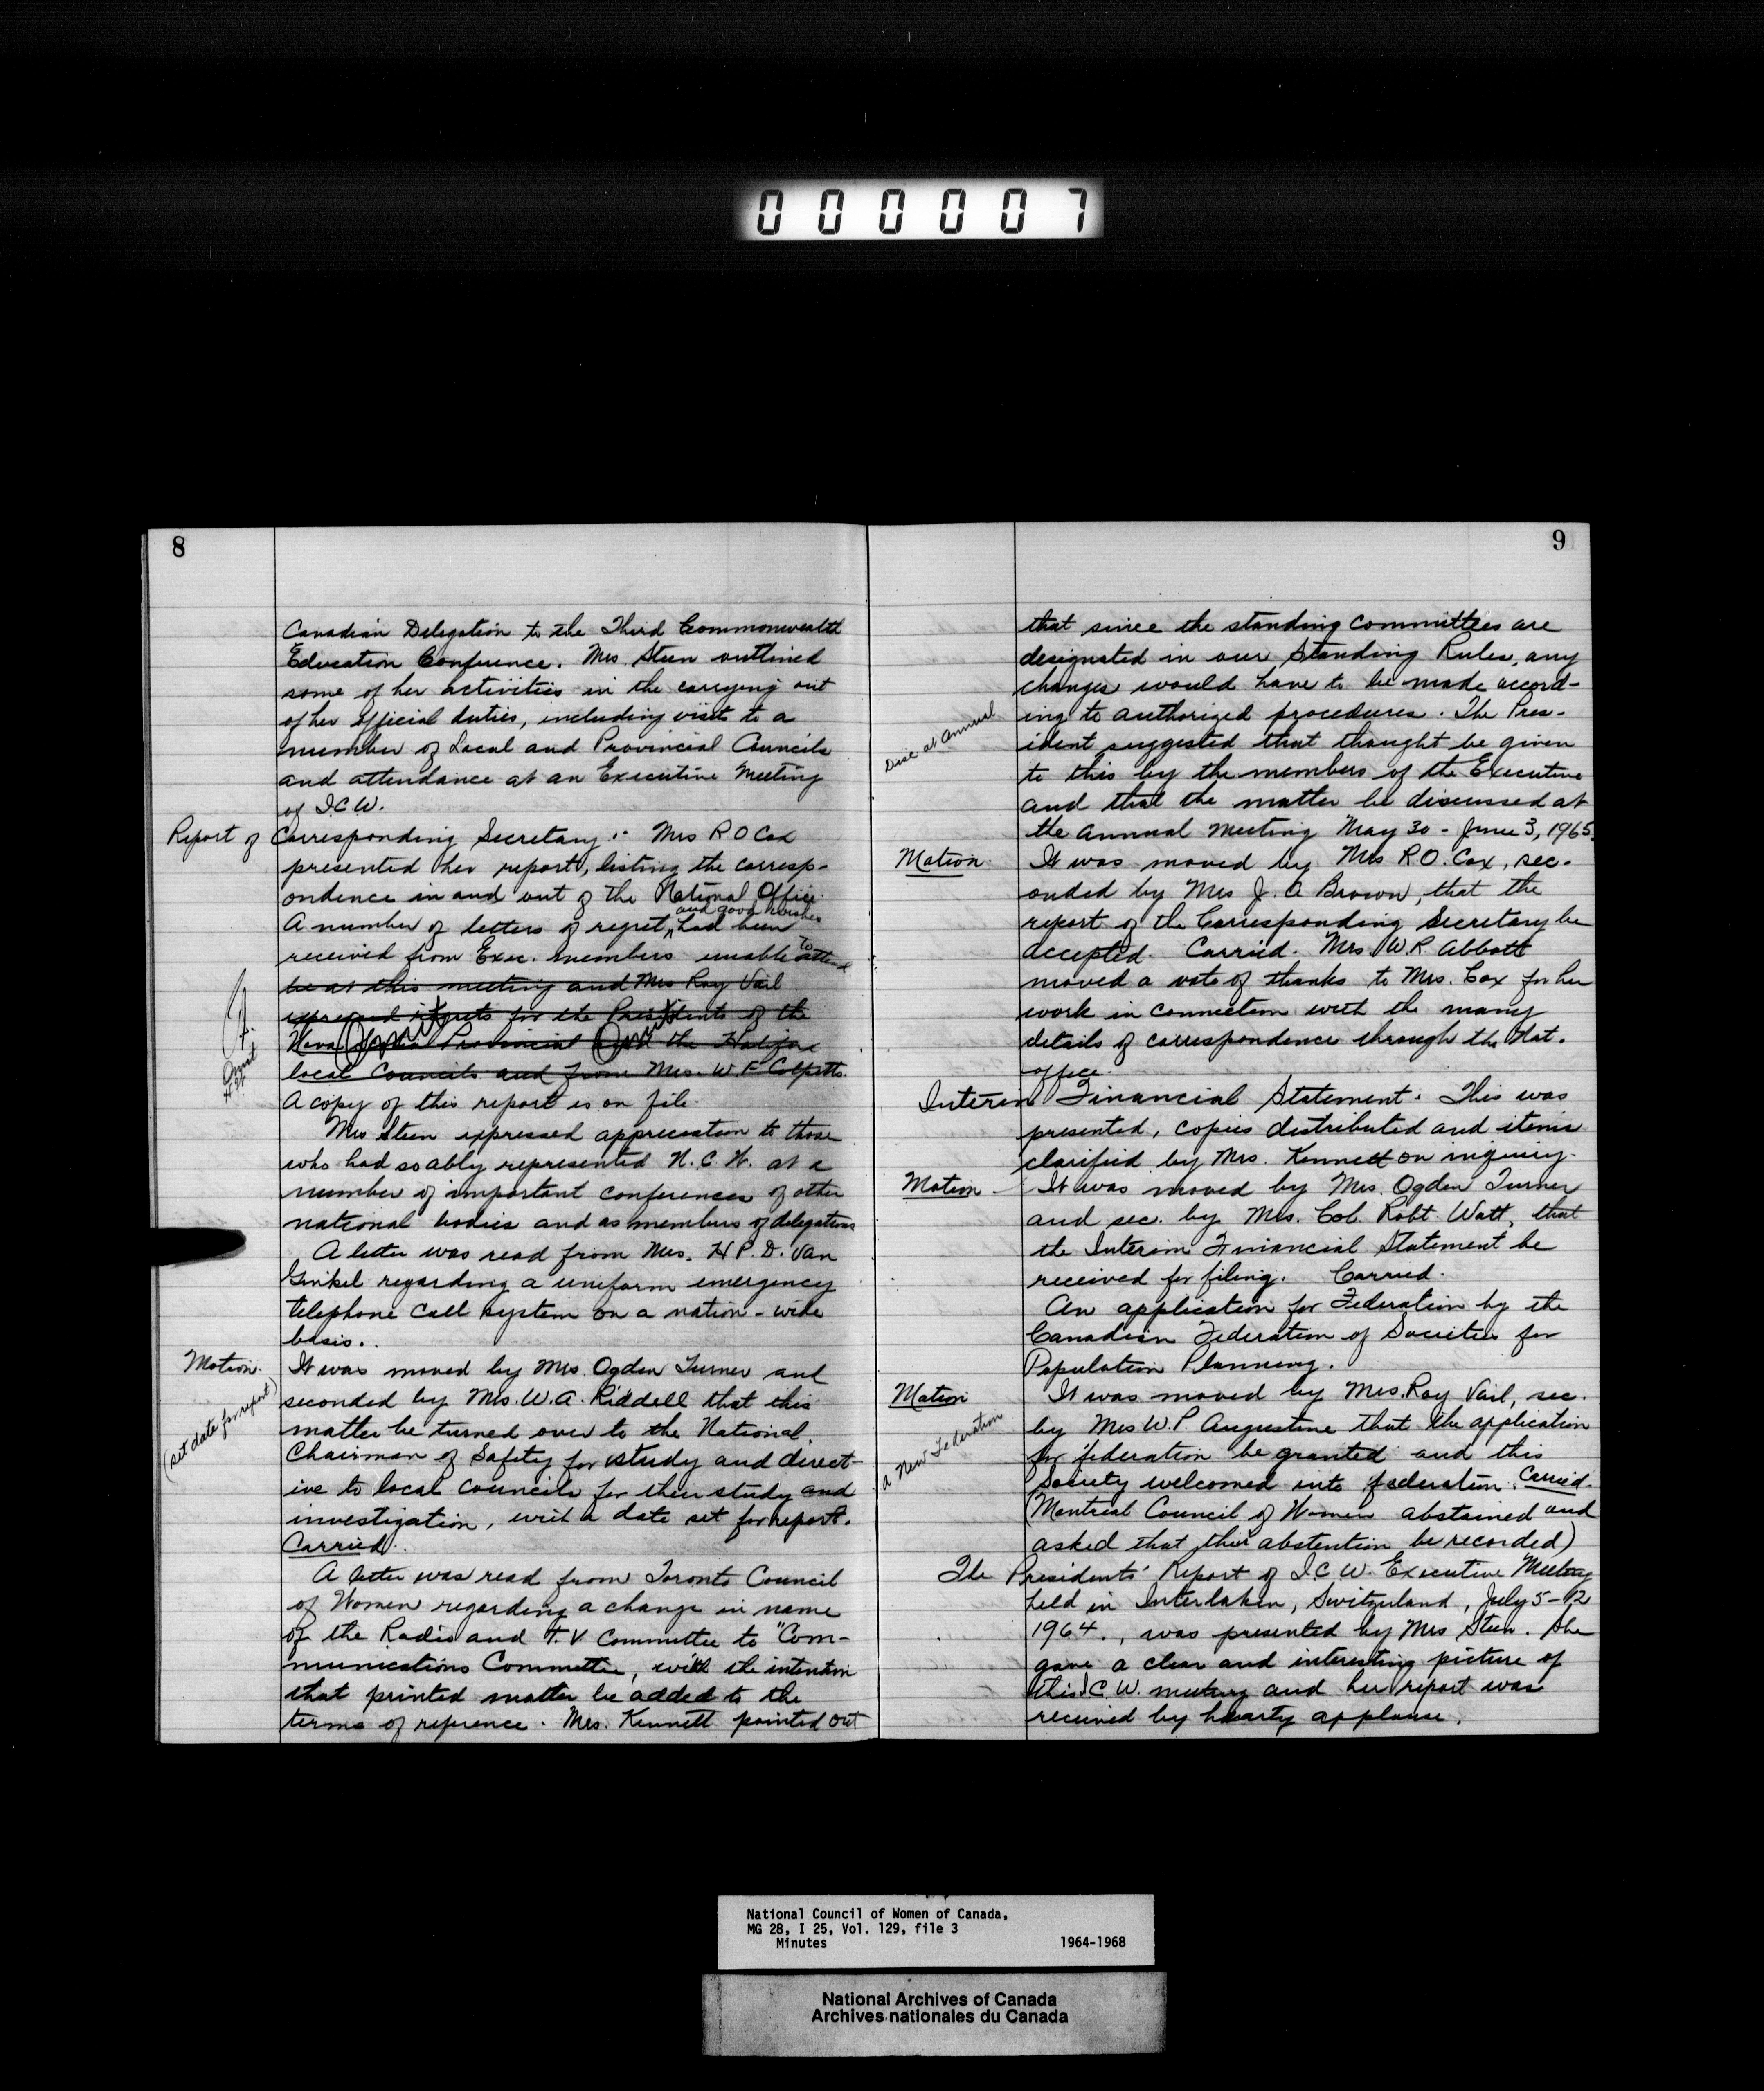 000007
8
Canadian Delegation to the Third Commonwealth
Education Conference. Mrs. Steen outlined
some of her activities in the carrying out
of her official duties, including visit to a
number of Local and Provincial Councils
and attendance at an Executive Meeting
of I.C.W.
Report of Corresponding Secretary :- Mrs R O Cox
presented her report, listing the corresp-
ondence in and out of the National Office.
and good wishes
A number of letters of regret, had been
received from Exec. members unable to attend
be at this meeting and Mrs Roy Vail
expressed regrets for the Presidents of the
Nova Scotia Provincial and the Halifax
Omit
Omit
local Councils and from Mrs. W. F Colpitts.
Omit
A copy of this report is on file.
Mrs Steen expressed appreciation to those
who had so ably represented N.C.W. at a
number of important conferences of other
national bodies and as members of delegations
A letter was read from Mrs. H P. D. Van
Ginkel regarding a uniform emergency
telephone call system on a nation-wide
basis.
Motion. It was moved by Mrs Ogden Turner and
seconded by Mrs. W. A. Riddell that this
(set date for report)
matter be turned over to the National
Chairman of Safety for study and direct-
ive to local councils for their study and
investigation, with a date set for report.
Carried.
A letter was read from Toronto Council
of Women regarding a change in name
of the Radio and T.V Committee to "Com-
munications Committee, with the intention
that printed matter be added to the
terms of reference. Mrs. Kennett pointed out
9
that since the standing committees are
designated in our Standing Rules, any
changes would have to be made accord-
ing to authorized procedures. The Pres-
Disc at Annual
ident suggested that thought be given
to this by the members of the Executive
and that the matter be discussed at
the Annual Meeting May 30 - June 3, 1965.
Motion. It was moved by Mrs R O. Cox, sec-
onded by Mrs J. A Brown, that the
report of the Corresponding Secretary be
accepted. Carried. Mrs. W R Abbott
moved a vote of thanks to Mrs. Cox for her
work in connection with the many
details of correspondence through the Nat.
office.
Interim Financial Statement: This was
presented, copies distributed and items
clarified by Mrs. Kennett on inquiry.
Motion - It was moved by Mrs. Ogden Turner
and sec. by Mrs. Col. Robt Watt, that
the Interim Financial Statement be
received for filing. Carried.
An application for Federation by the
Canadian Federation of Societies for
Population Planning.
Motion It was moved by Mrs. Roy Vail, sec.
by Mrs W. P Augustine that the application
a New Federation
for federation be granted and this
Society welcomed into federation. Carried.
(Montreal Council of Women abstained and
asked that their abstention be recorded)
The Presidents' Report of I.C.W. Executive Meeting
held in Interlaken, Switzerland, July 5-12
1964., was presented by Mrs Steen. She
gave a clear and interesting picture of
this I.C.W. meeting and her report was
received by hearty applause.
National Council of Women of Canada,
MG 28, I 25, Vol. 129, file 3
Minutes 1964-1968
National Archives of Canada
Archives nationales du Canada